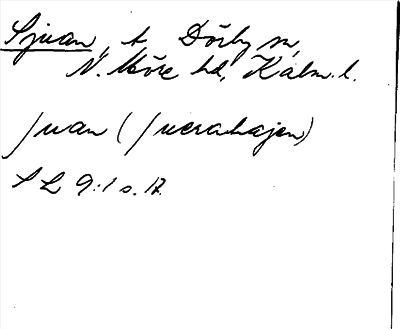 Sjuan, t. Dörby sn,
N. Möre hd, Kalm. l.
Juan (Juerahajen)
SL 9:1 s. 17.